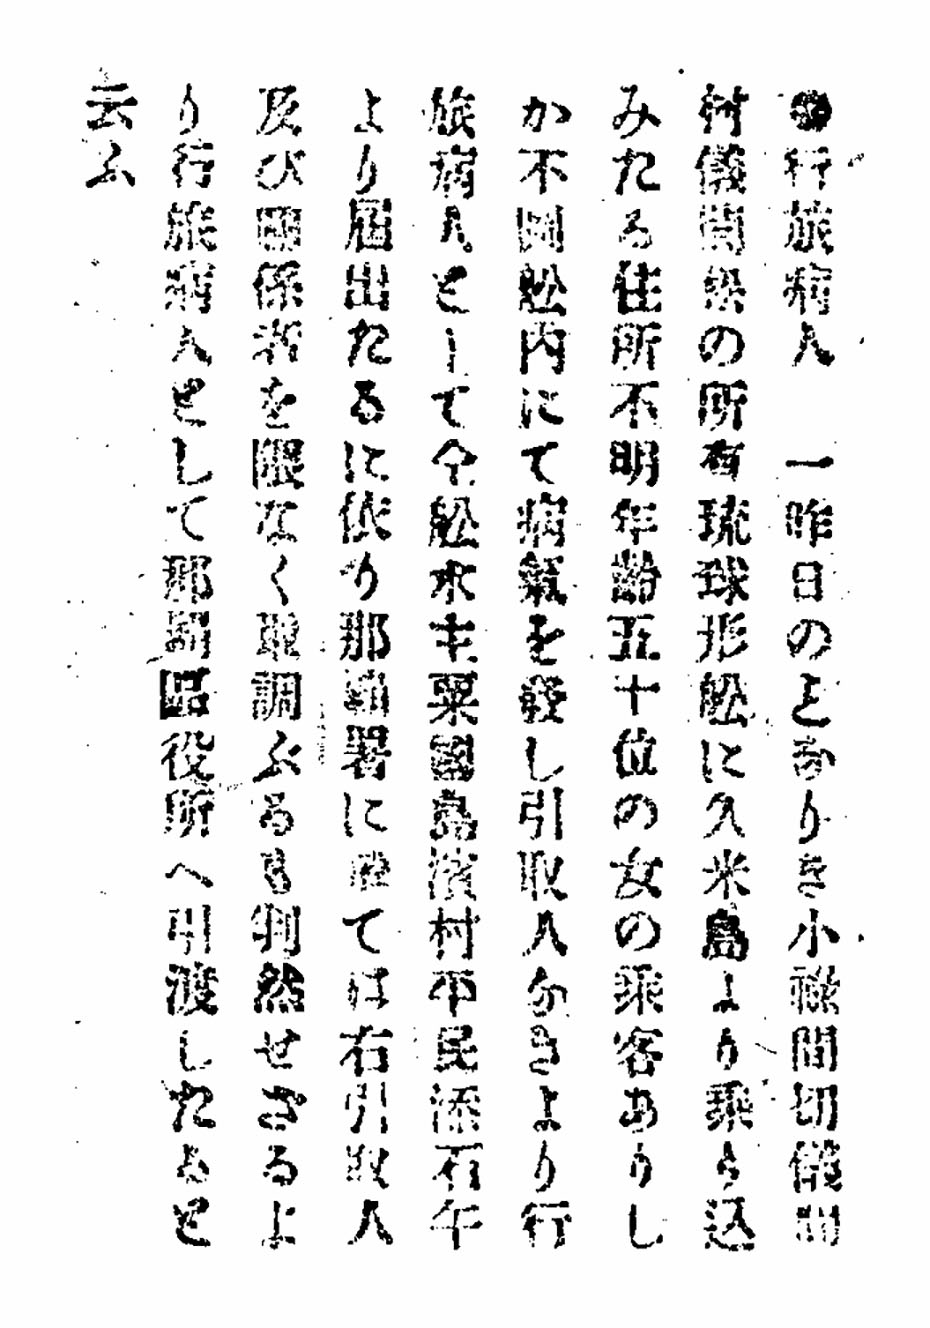 ●行旅病人　一昨日のとありき小祿間切儀間
村儀間某の所有琉球形舩に久米島より乘り込
みたる住所不明年齡五十位の女の乘客ありし
か不圖舩内にて病氣を發し引取人なきより行
旅病人として仝舩水主粟國島濱村平民添石午
より屆出たるに依り那覇署に於ては右引取人
及び關係者を隈なく取調ぶるも判然せざるよ
り行旅病人として那覇區役所へ引渡したると
云ふ